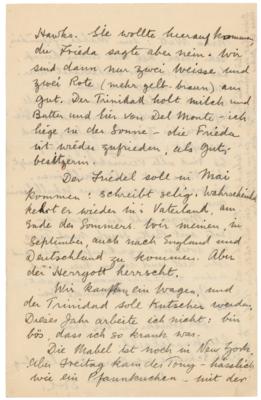 Hawks. Sie wollte hierauf kommen,
die Frieda sagte aber nein. Wir
sind dann nur zwei Weisse und
zwei Rote (mehr gelb-braun) am
gut. Der Trinidad holt milch und
Butter und bier von Del Monte - ich
liege in der Sonne - die Frieda
ist wieder zufrieden, als Guts-
besitzerin.
Der Friedel soll in Mai
kommen: schreibt selig. Wahrscheinlich
kehrt er wieder ins Vaterland, am
Ende des Sommers. Wir meinen, in
September, auch nach England und
Deutschland zu kommen. Aber
der Herrgott herrscht.
Wir kaufen ein Wagen, und
der Trinidad soll Kutscher werden.
Dieses Jahr arbeite ich nicht: bin
bös dass ich so krank war.
Die Mabel ist noch in New York.
Aber Freitag kam des Tony - hässlich
wie ein Pfannkuchen - mit der